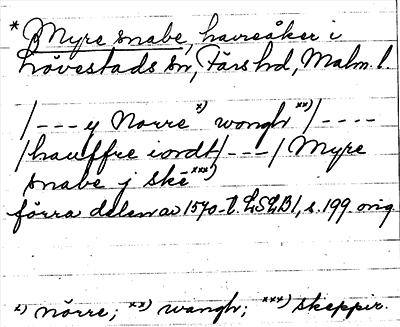 * Myre snabe, havreåker i
Lövestads sn, Färs hd, Malm. l.
/---y Nörre x) wongh xx)/----
/hauffre iordt/---/ Myre
snabe j ske xxx)
förra delen av 1570-t. LSLB1, s. 199 orig.
x) nörre; xx) wangh; xxx) skepper.